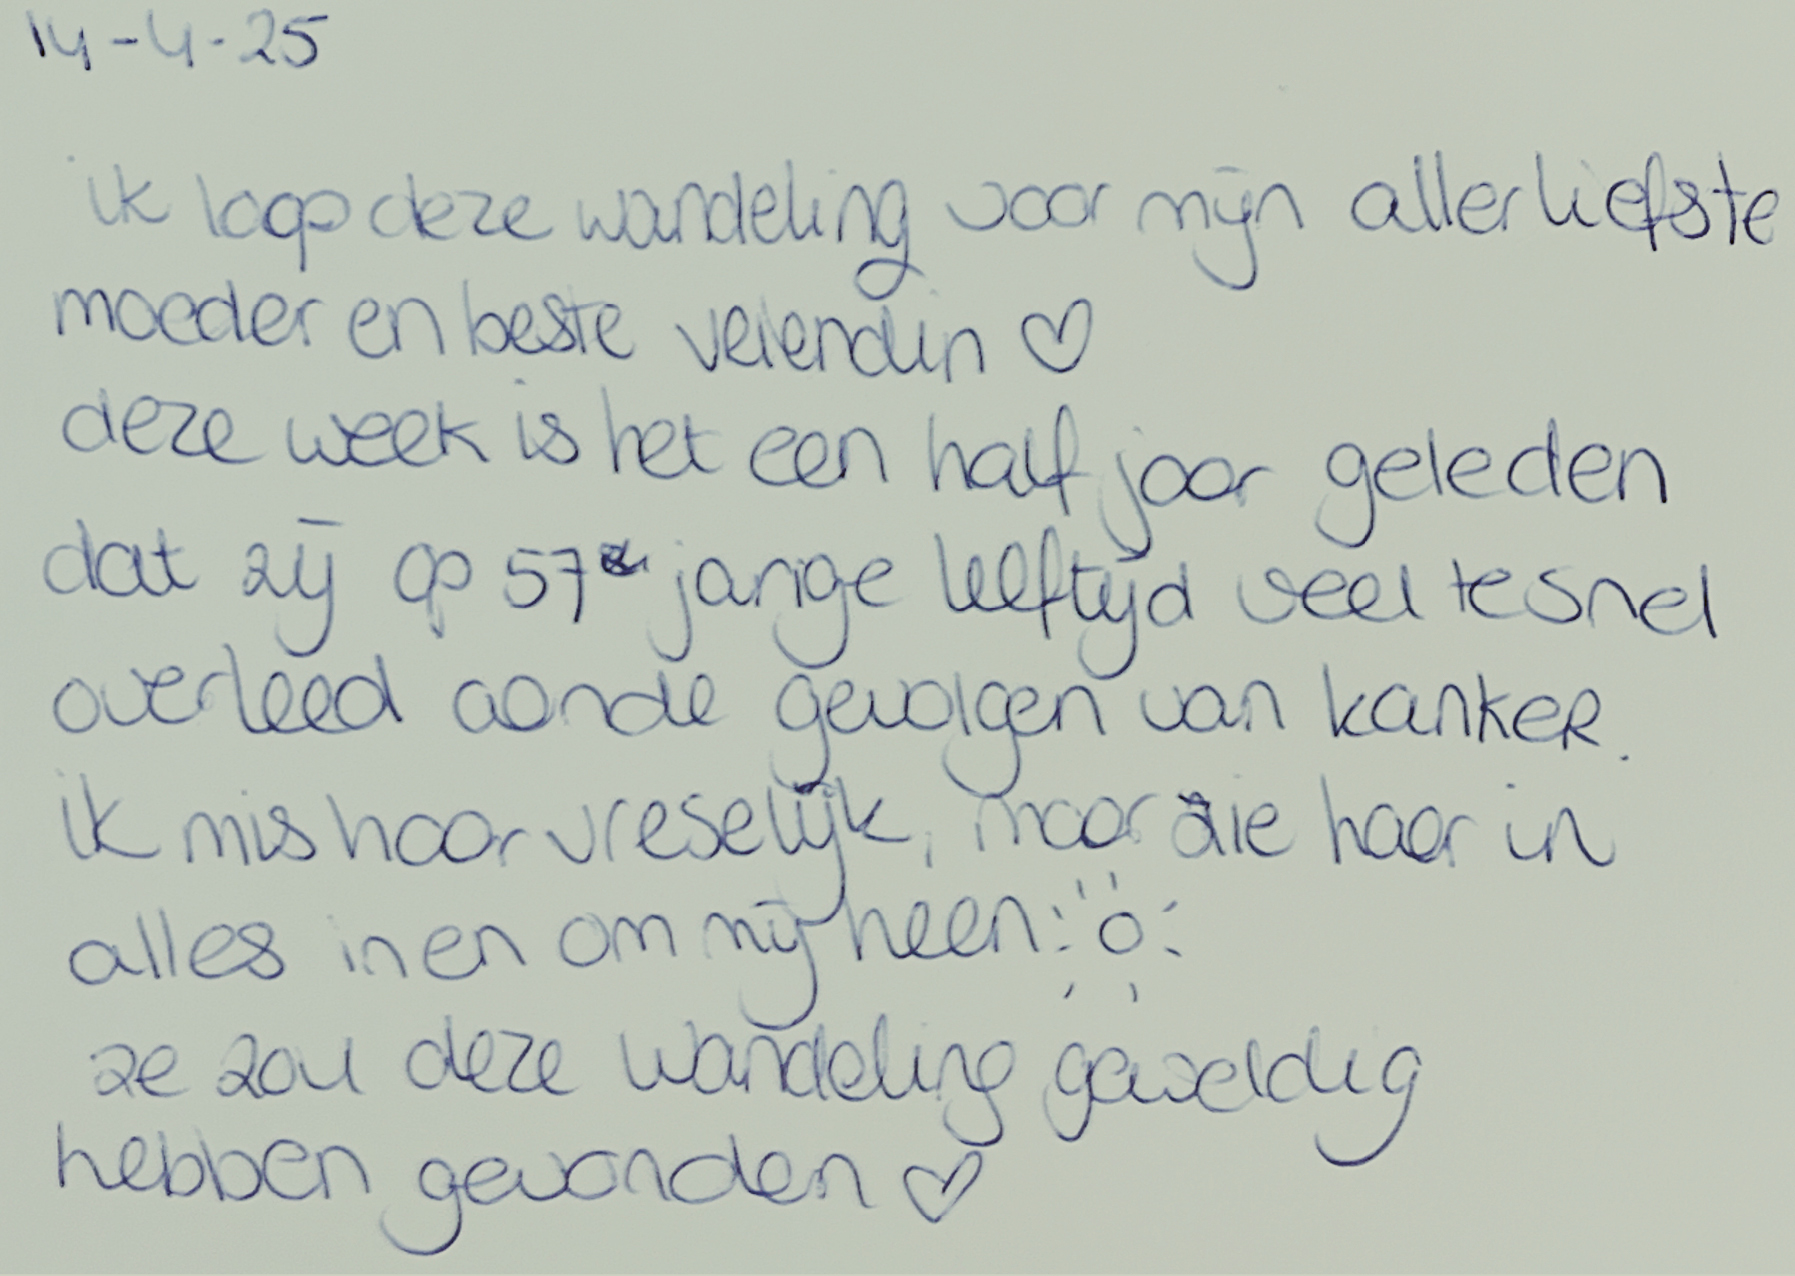 14-4-25
ik loop deze wandeling voor mijn allerliefste
moeder en beste veiendin ♡
deze week is het een half jaar geleden
dat zij op 57 jarige leeftijd veel te snel
overleed aan de gevolgen van kanker.
ik mis haar vreselijk, maar zie haar in
alles in en om mij heen
ze zou deze wandeling geweldig
hebben gevonden ♡